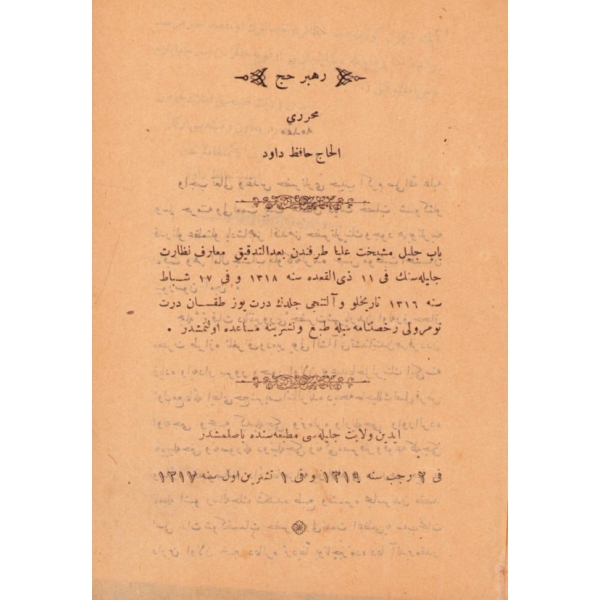 رهبر حج
محرری
الحاج حافظ داود
باب جلیل مشیخت علیا طرفندن بعدالتدقیق معارف نظارت
جلیله‌سنك فی ۱۱ ذی القعده سنه ۱۳۱۸ و فی ۱۷ شباط
سنه ۱۳۱۶ تاریخلو و آلتنجی جلدك درت یوز طقسان درت
نومرولی رخصتنامه سیله طبع و نشرینه مساعده اولنمشدر .
ایدین ولایت جلیله‌سی مطبعه‌سنده باصلمشدر
فی ۲ رجب سنه ۱۳۱۹ و فی ۱ تشرین اول سنه ۱۳۱۷